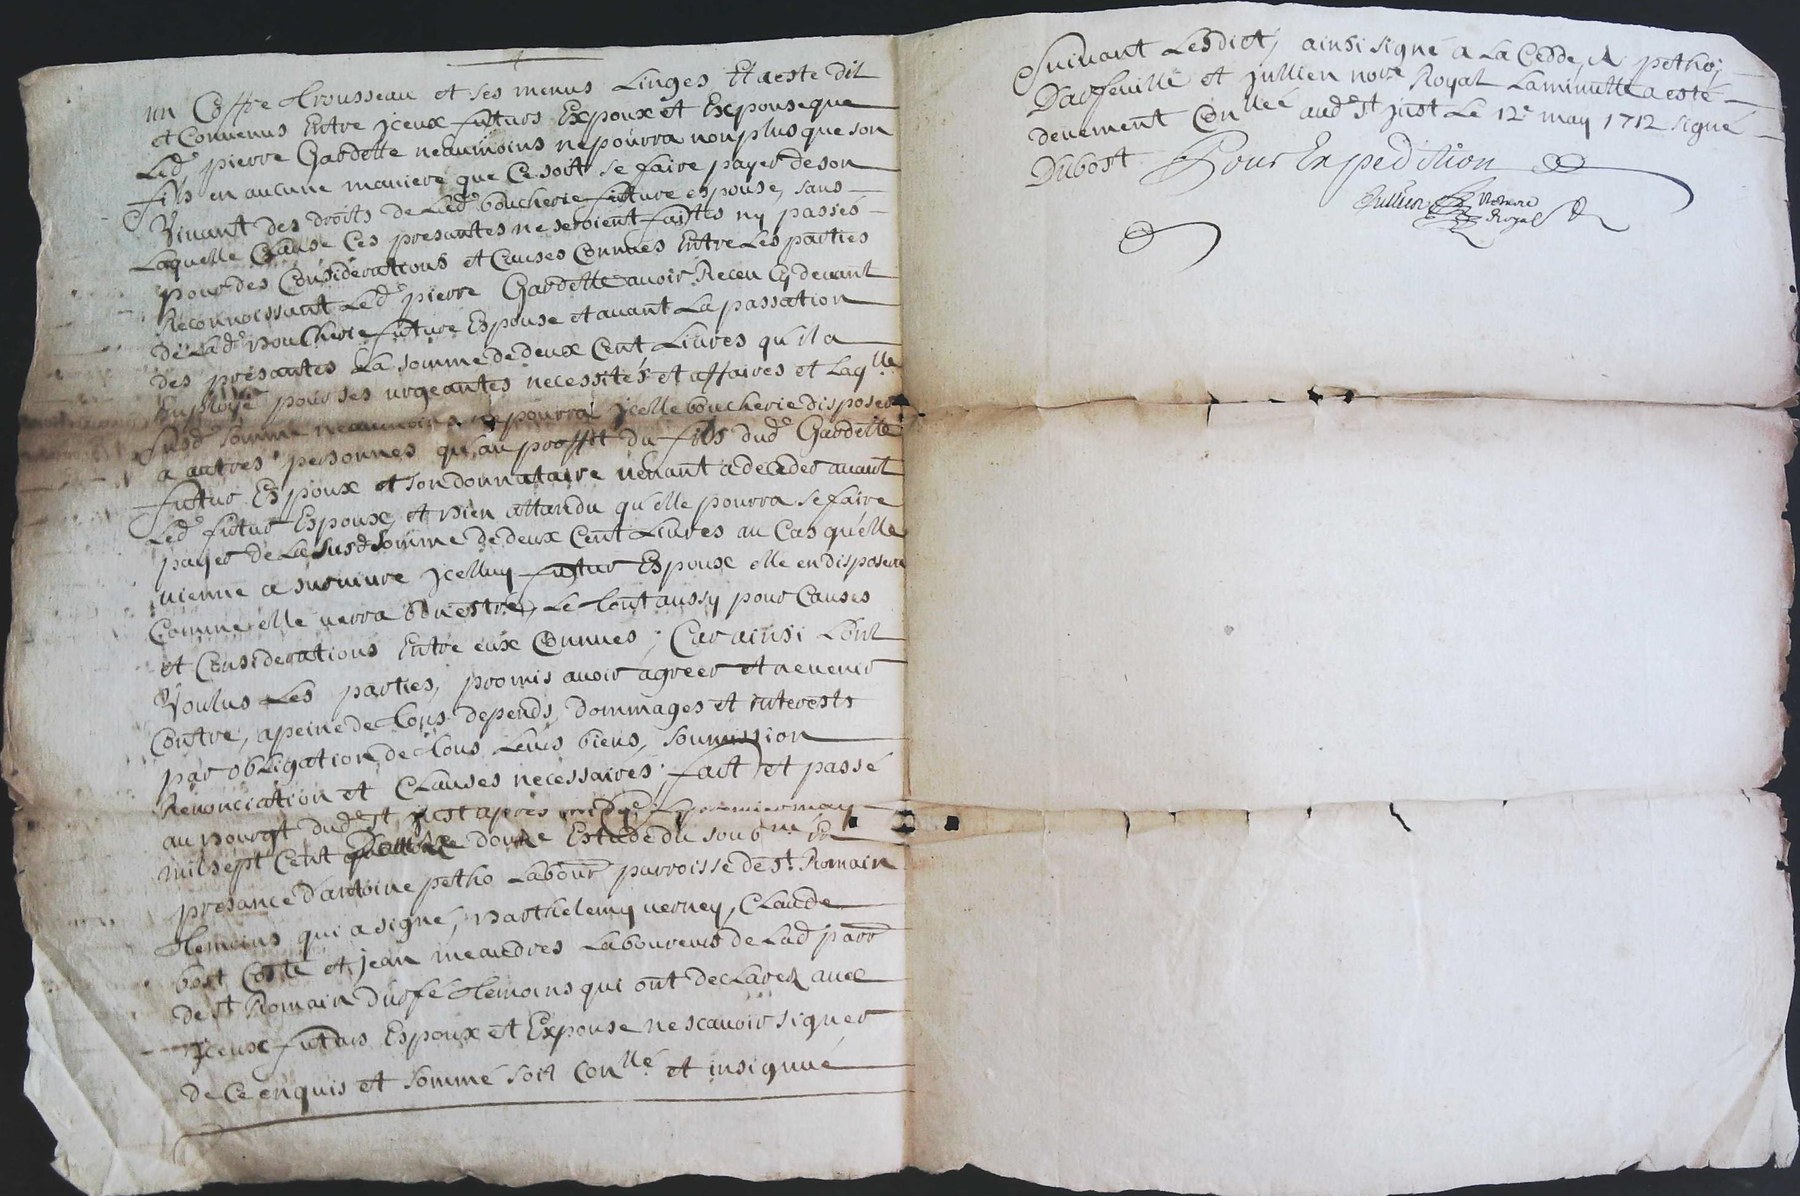 un Coffre trousseau et ses menus Linges Et a esté dit
et Convenus Entre iceux futurs Expoux et Expouse que
Led. pierre Gardette neaumoins ne pourra non plus que son
fils en aucune maniere que Ce soit se faire payer de son
Vivant des droits de Lad. boucherie future espouse, sans
Laquelle Clause Ces presantes ne seroient faittes ny passés
pour des Considerations et Causes Connues Entre Les parties
Reconnoissant Led. pierre Gardette avoir Receu Cy devant
de Lad. Boucherie future Espouse et avant La passation
des presantes La somme de deux Cent Livres qu'il a
Employé pour ses urgeantes necessités et affaires et Laqlle
susd. somme neaumoins ne pourra jcelle boucherie disposer
a autres personnes qu'au proffit du fils dud. Gardette
futur Espoux et son donnataire venant a deceder avant
Led. futur Espoux, et Bien attandu qu'elle pourra se faire
payer de La susd. somme de deux Cent Livres au Cas qu'elle
vienne a survivre jcelluy futur Espoux elle en disposera
Comme elle verra bon estre, Le tout aussy pour Causes
et Considerations Entre eux Connues, Car ainsi L'ont
Voulus Les parties, promis avoir agreer et ne venir
Contre, a peine de tous depends, dommages et interests
par obligation de tous Leurs biens, soumission
Renonciation et Clauses necessaires, fait et passé
au Bourgt dud. St just apres midy Le premier may
mil sept Cent douze Estude du soubné En
presance d'antoine petho Labour parroisse de St Romain
temoins qui a signé, Barthelemy verney, Claude
bost Coste et jean meandres Laboureurs de Lad parr
de St Romain durfé temoins qui ont declarez avec
jceux futurs Espoux et Expouse ne scavoir signer
de Ce enquis et sommé soit Conllé et insignué
suivant Lesdict, ainsi signé a La Cedde A petho,
Dacfeuille et jullien nore Royal La minutte a esté
deuement Conllée aud. St just Le 12e may 1712 signé
Dubost Pour Expedition
Jullien Notaire
Royal